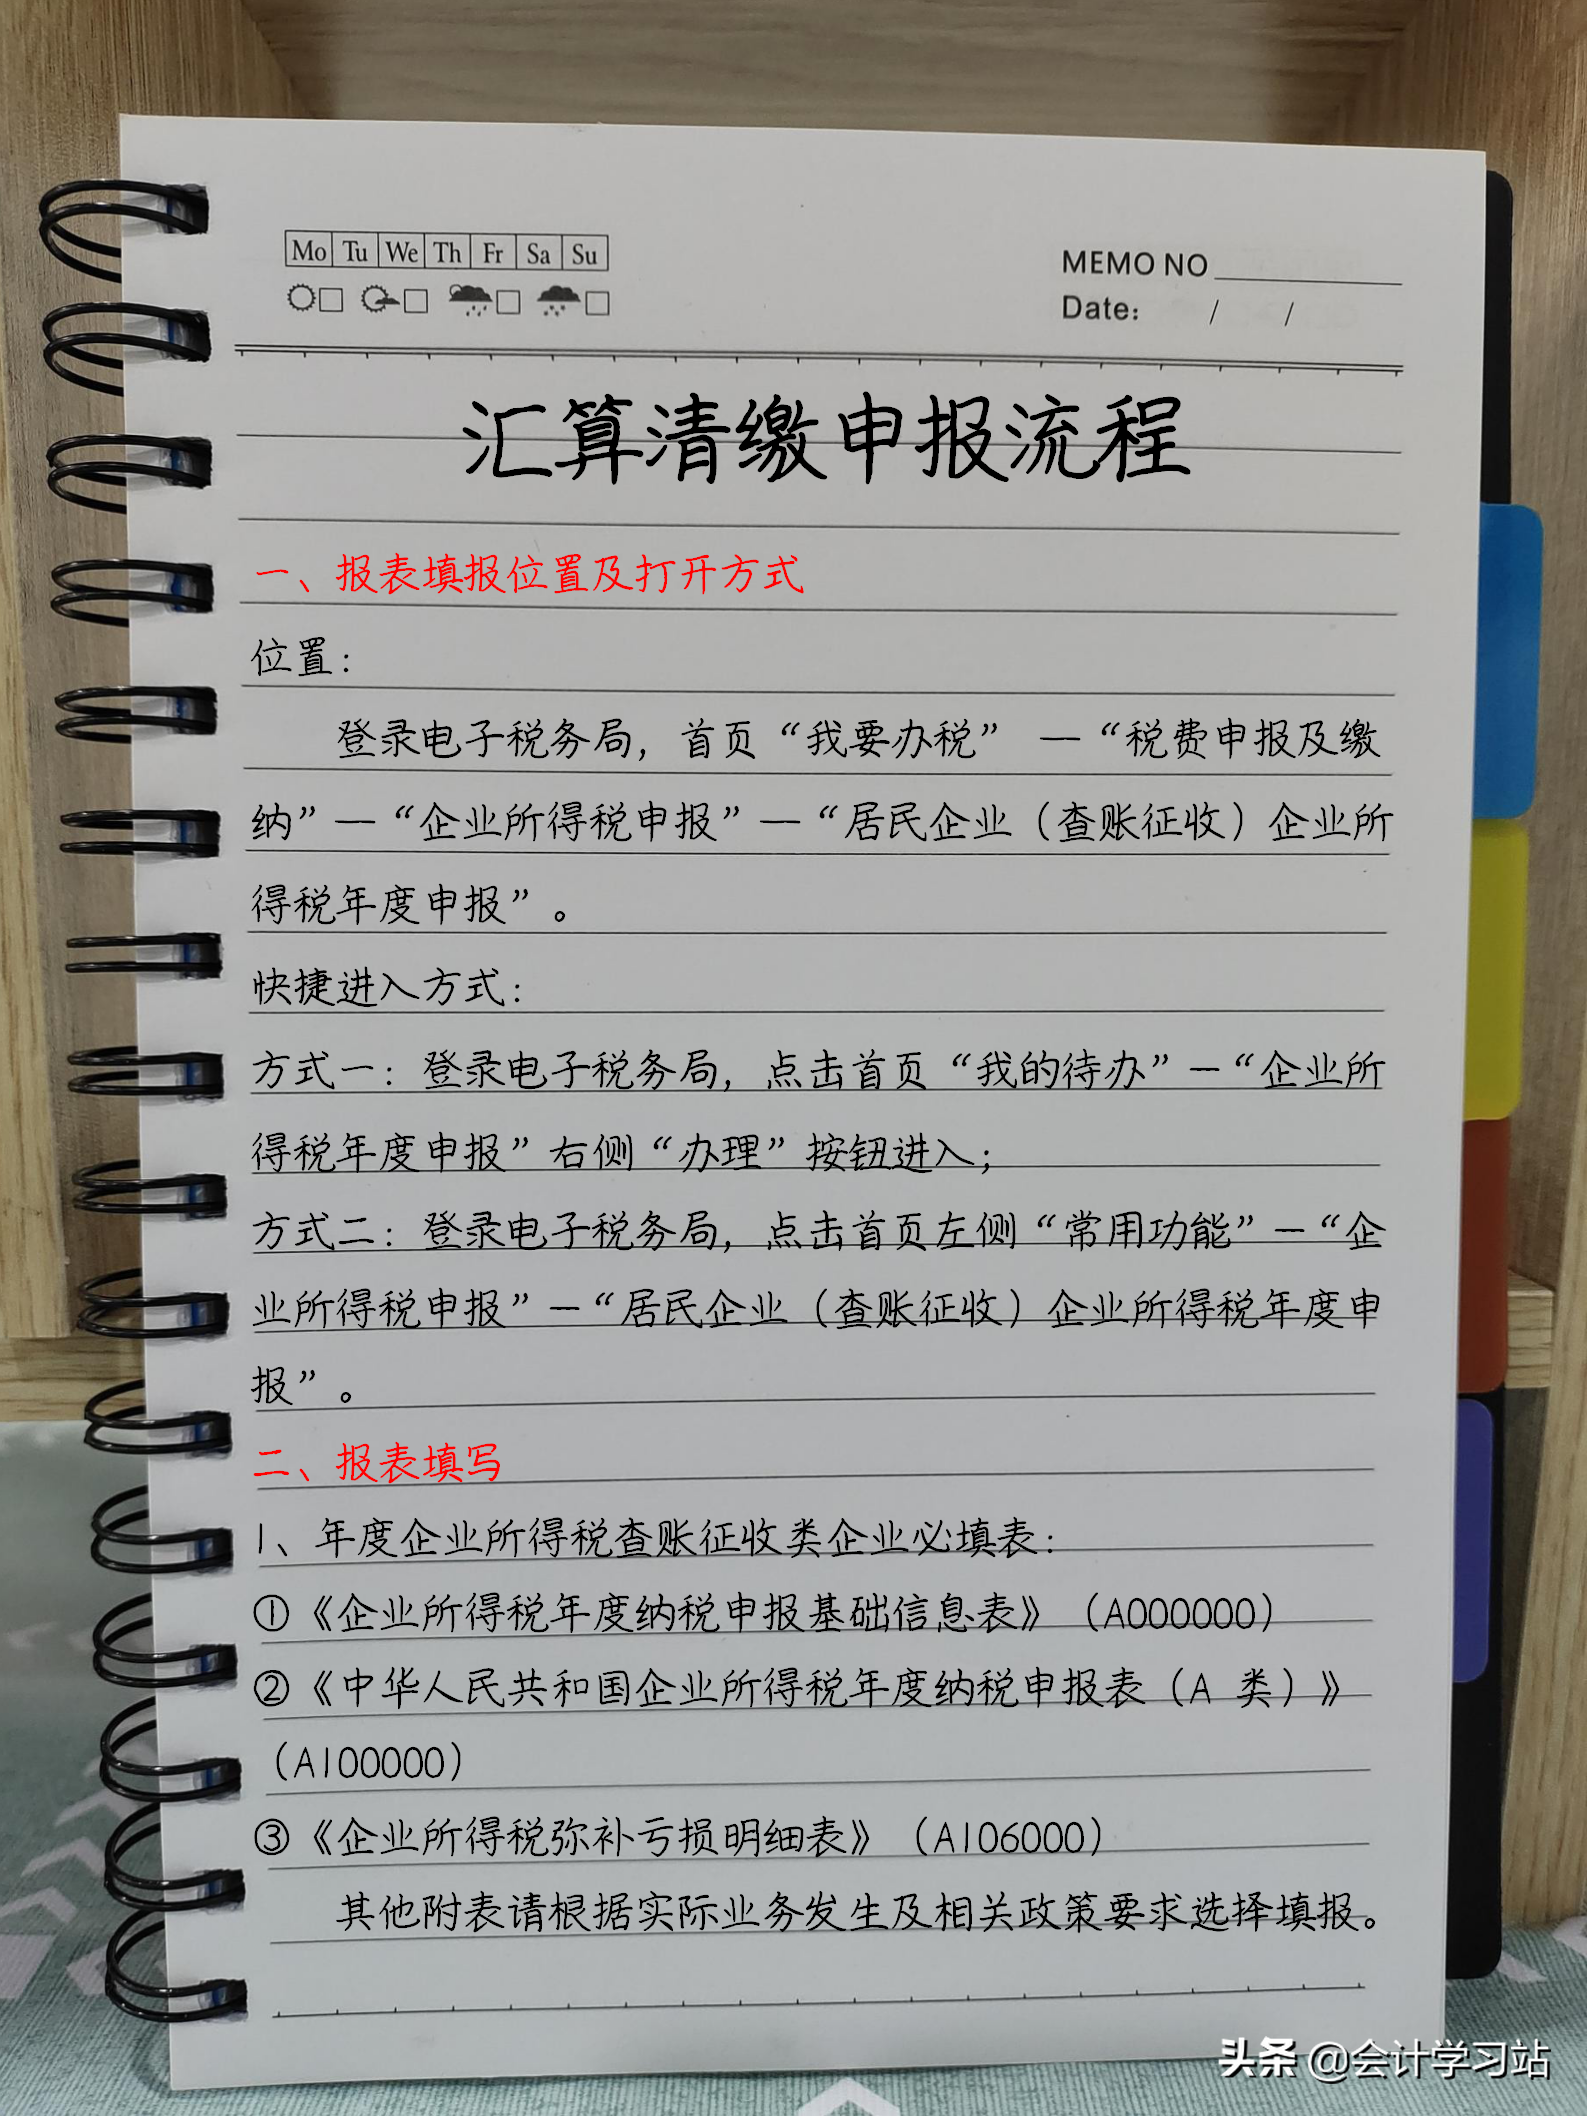 Mo Tu We Th Fr Sa Su
MEMO NO
Date: / /
汇算清缴申报流程
一、报表填报位置及打开方式
位置：
登录电子税务局，首页“我要办税” —“税费申报及缴
纳”—“企业所得税申报”—“居民企业（查账征收）企业所
得税年度申报”。
快捷进入方式：
方式一：登录电子税务局，点击首页“我的待办”—“企业所
得税年度申报”右侧“办理”按钮进入；
方式二：登录电子税务局，点击首页左侧“常用功能”—“企
业所得税申报”—“居民企业（查账征收）企业所得税年度申
报”。
二、报表填写
1、年度企业所得税查账征收类企业必填表：
①《企业所得税年度纳税申报基础信息表》（A000000）
②《中华人民共和国企业所得税年度纳税申报表（A 类）》
（A100000）
③《企业所得税弥补亏损明细表》（A106000）
其他附表请根据实际业务发生及相关政策要求选择填报。
头条 @会计学习站